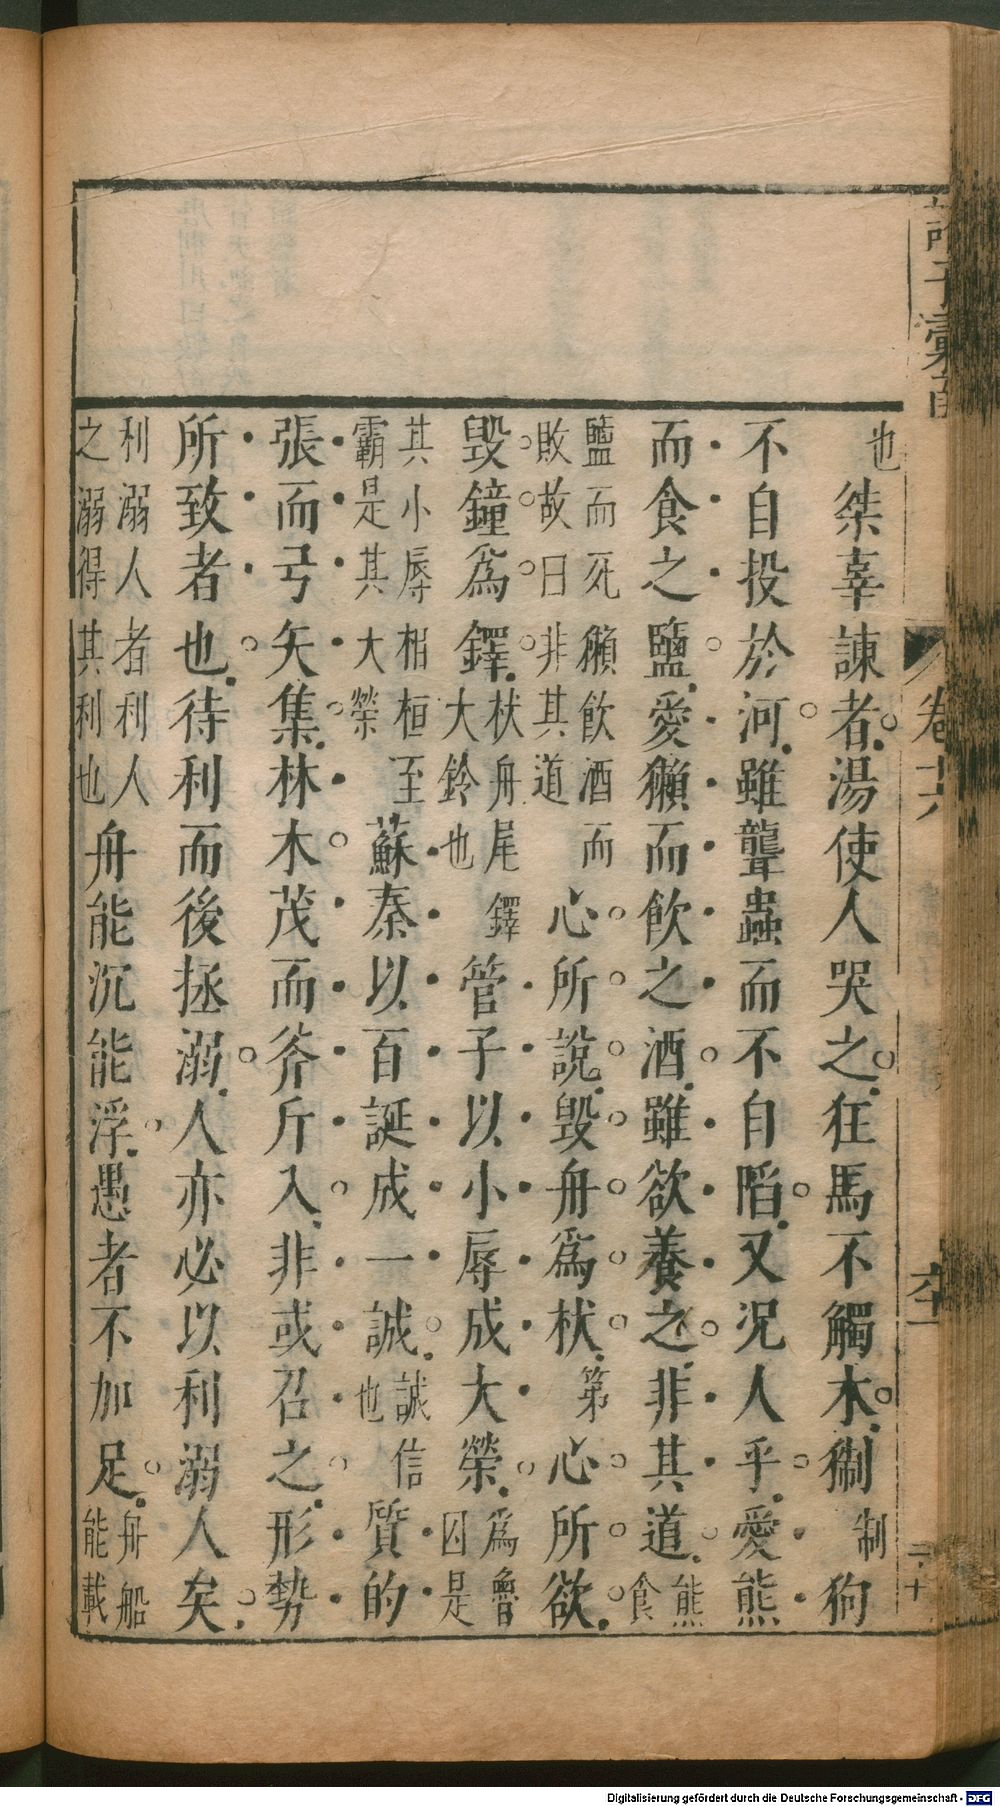 諸子彙函 卷十六
也桀辜諫者湯使人哭之狂馬不觸木猘制狗
不自投於河雖聾蟲而不自陷又況人乎愛熊
而食之鹽愛獺而飲之酒雖欲養之非其道熊食
鹽而死獺飲酒而敗故曰非其道心所說毀舟爲杕第心所欲
毀鐘爲鐸杕舟尾鐸大鈴也管子以小辱成大榮爲魯囚是
其小辱相桓至霸是其大榮蘇秦以百誕成一誠誠信也質的
張而弓矢集林木茂而斧斤入非或召之形勢
所致者也待利而後拯溺人亦必以利溺人矣
利溺人者利人之溺得其利也舟能沉能浮愚者不加足舟船能載
Digitalisierung gefördert durch die Deutsche Forschungsgemeinschaft - DFG